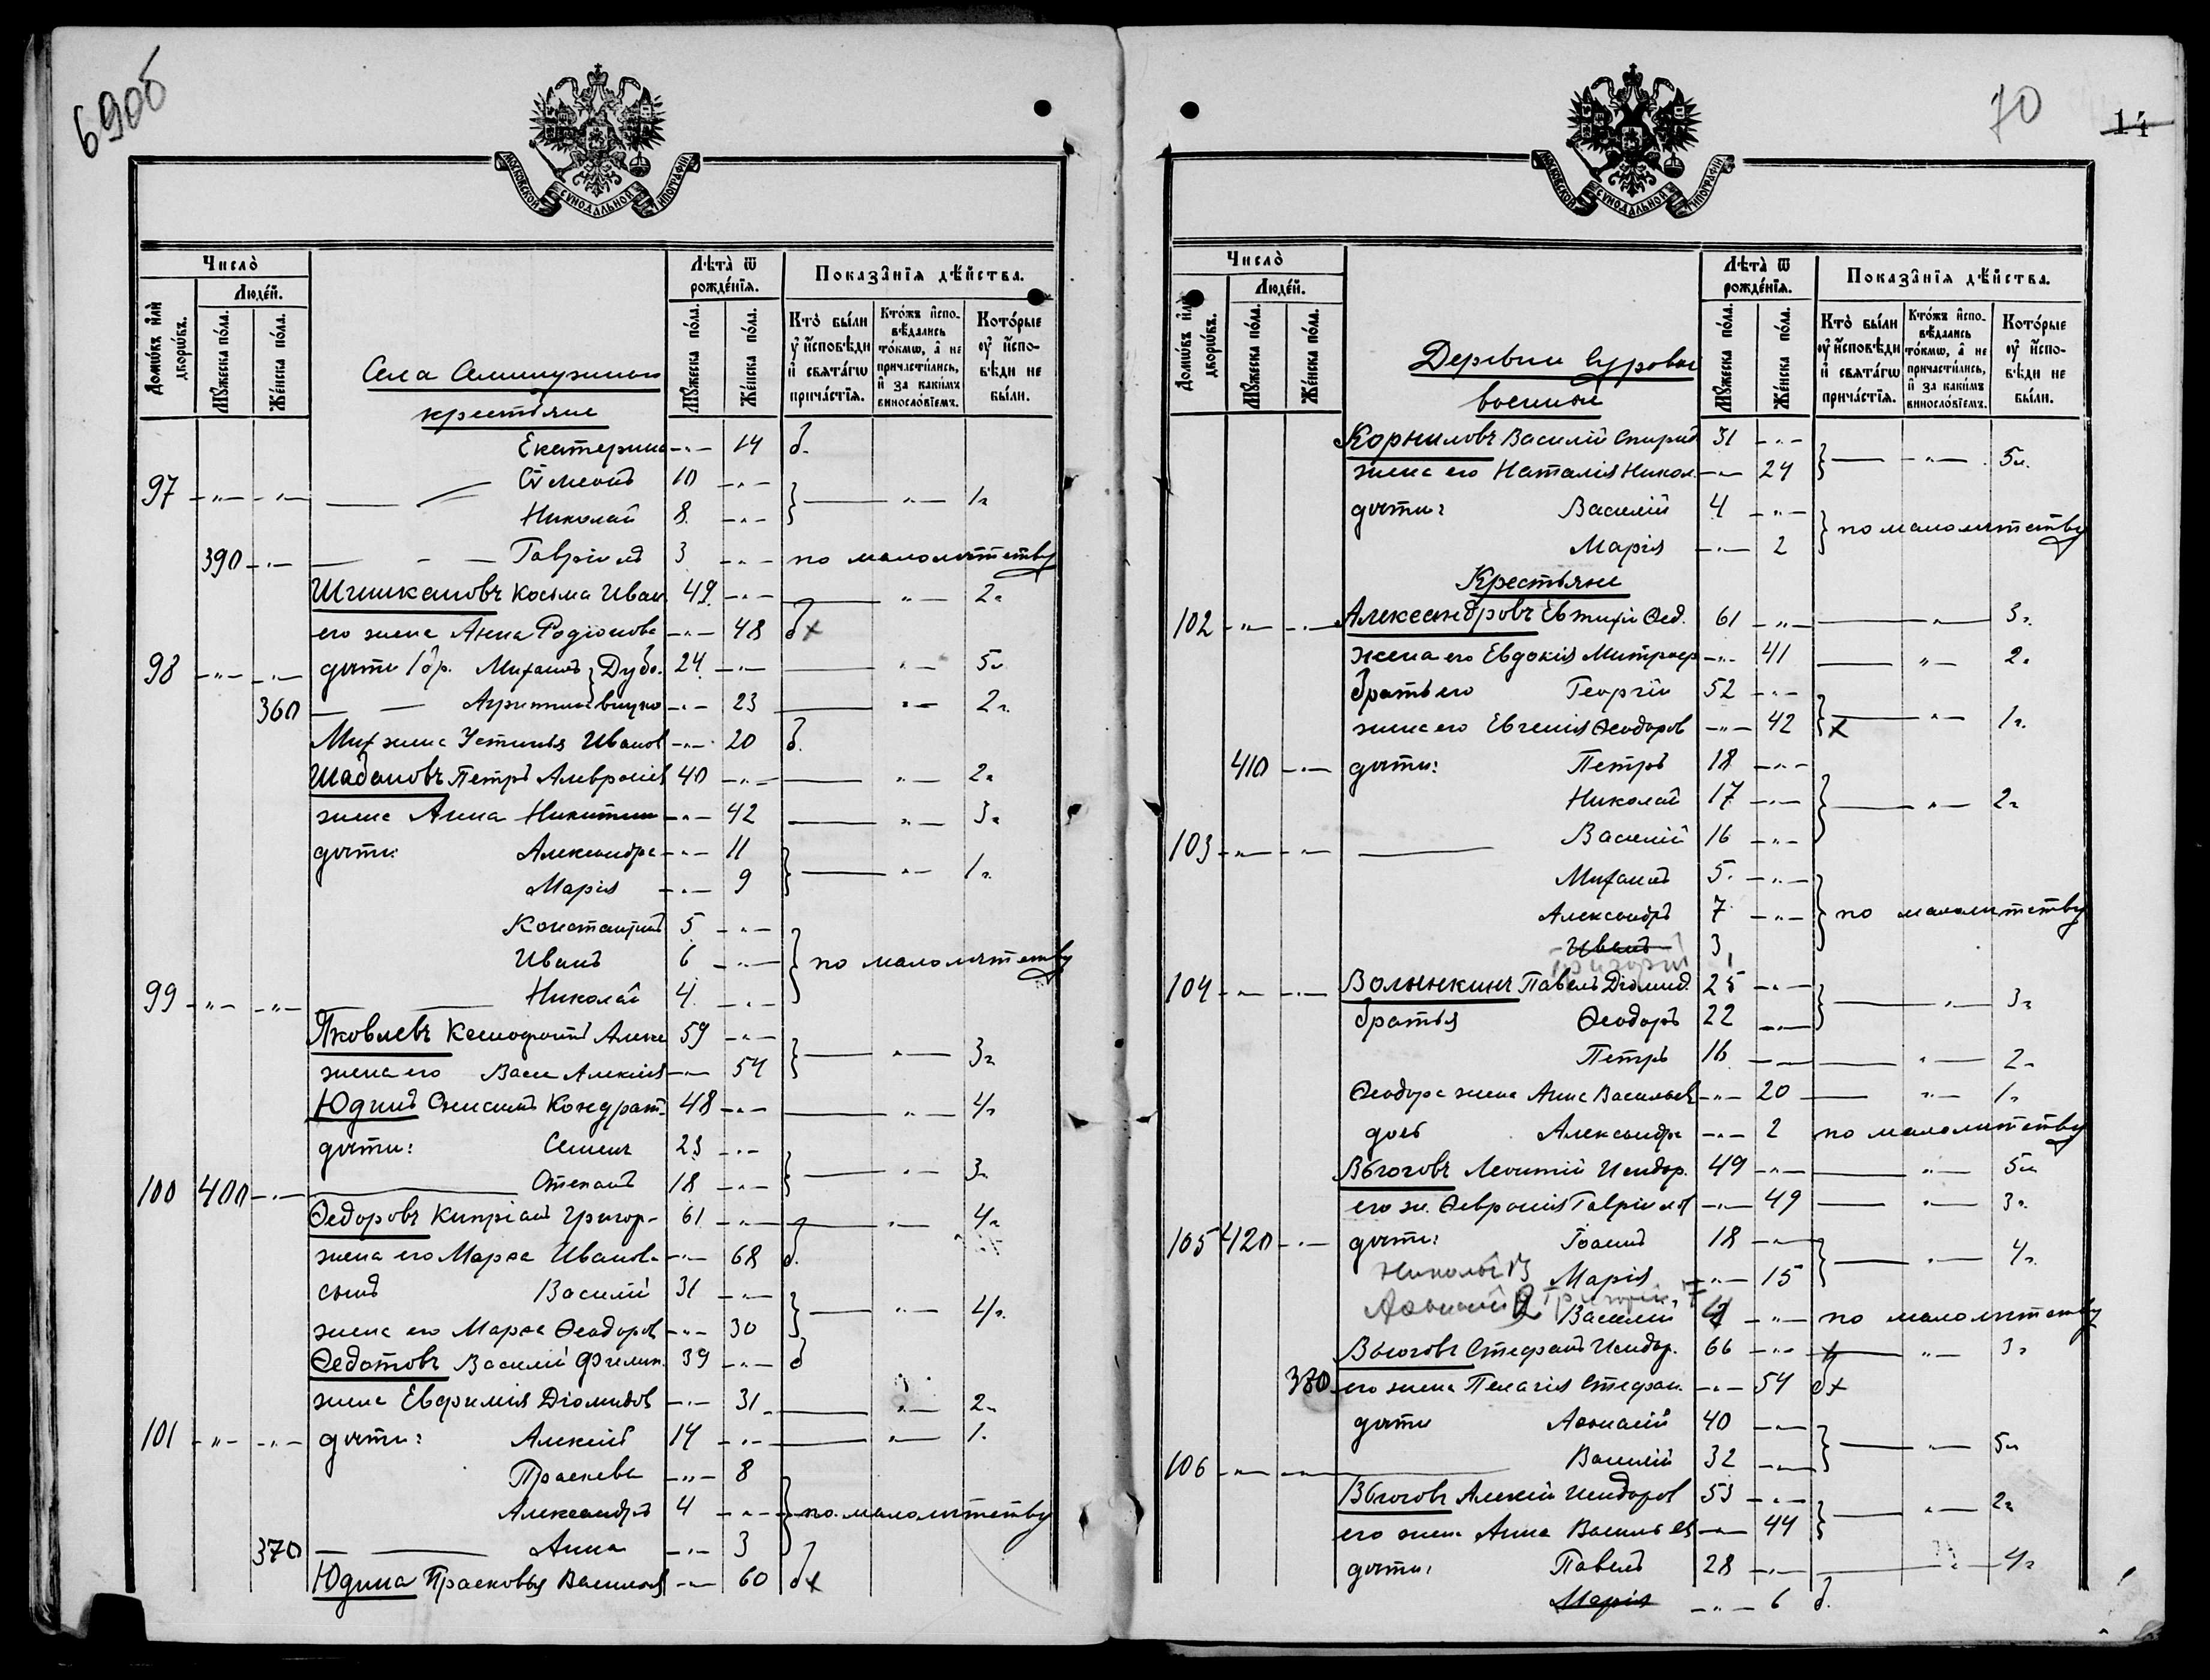 690б
МОСКОВСКОЙ СѴНОДАЛЬНОЙ ТИПОГРАФІИ
Число̀
Домѡ́въ и҆лѝ дворѡ́въ.
Люде́й.
Мꙋ́жеска по́ла.
Же́нска по́ла.
Лѣта̀ ѿ рожде́нїѧ.
Мꙋ́жеска по́ла.
Же́нска по́ла.
Показа̑нїѧ дѣ́йства.
Кто̀ бы́ли ᲂу҆ и҆сповѣ́ди и҆ свѧта́гѡ прича́стїѧ.
Кто́жъ и҆сповѣ́дались то́кмѡ, а҆ не причасти́лись, и҆ за каки́мъ винослѡ́вїемъ.
Кото́рые ᲂу҆ и҆спо́вѣди не бы́ли.
Села
крестьяне
Екатерина -"- 14 б.
97 -"- -"- Сѵмеонъ 10 -"-
Николай 8. -"- } — " — 1 г.
390 -"- — - — Гавріилъ 3 -"- по малолѣтству
Косьма Иван. 49. -"- — " — 2 г.
его жена Анна Родіонова -"- 48 б +
98 -"- -"- дѣти Михаилъ 24. -"- — " — 5 г.
360 — — -"- 23 — " — 2 г.
Мих жена Устинья Иванов -"- 20 б.
Шабановъ Петръ 40 -"- — " — 2 г.
жена Анна Никитина -"- 42 — " — 3 г.
дѣти: Александра -"- 11
Марія -"- 9 } — " — 1 г.
Константинъ 5 -"-
Иванъ 6 -"- } по малолѣтству
99 -"- -"- Николай 4. -"-
Яковлевъ Ксенофонтъ Алекс 59 -"-
жена его Васса Алексіев -"- 54 } — " — 3 г.
Юдинъ Онисимъ Кондрат. 48 -"- — " — 4 г.
дѣти: Семенъ 23 -"-
100 400 -"- Степанъ 18 -"- } — " — 3 г.
Ѳедоровъ Кипріанъ Григор- 61 -"- — " — 4 г.
жена его Марѳа Иванов. -"- 68 б.
сынъ Василій 31 -"-
жена его Марѳа Ѳеодоров -"- 30 } — " — 4 г.
Ѳедотовъ Василій Филип. 39 -"- б
жена Евфимія Діомидов -"- 31 — " — 2 г.
101 -"- -"- дѣти: Алексій 14 -"- — " — 1.
Праскева -"- 8
Александръ 4 -"- } по малолѣтству
370 — — Анна -"- 3
Юдина Прасковья Васильев -"- 60 б +
70
14
МОСКОВСКОЙ СѴНОДАЛЬНОЙ ТИПОГРАФІИ
Число̀
Домѡ́въ и҆лѝ дворѡ́въ.
Люде́й.
Мꙋ́жеска по́ла.
Же́нска по́ла.
Лѣта̀ ѿ рожде́нїѧ.
Мꙋ́жеска по́ла.
Же́нска по́ла.
Показа̑нїѧ дѣ́йства.
Кто̀ бы́ли ᲂу҆ и҆сповѣ́ди и҆ свѧта́гѡ прича́стїѧ.
Кто́жъ и҆сповѣ́дались то́кмѡ, а҆ не причасти́лись, и҆ за каки́мъ винослѡ́вїемъ.
Кото́рые ᲂу҆ и҆спо́вѣди не бы́ли.
Деревни Суровой
военные
Корниловъ Василій Спирид 31 -"-
жена его Наталія Никол. -"- 24 } — " — 5 г.
дѣти: Василій 4 -"-
Марія -"- 2 } по малолѣтству
Крестьяне
102 -"- -"- Александровъ Евтихій Ѳед. 61 -"- — " — 3 г.
жена его Евдокія Митроф -"- 41 — " — 2 г.
братъ его Георгій 52 -"-
жена его Евгенія Ѳеодоров -"- 42 } + — " — 1 г.
410 -"- дѣти: Петръ 18 -"-
Николай 17 -"- } — " — 2 г.
103 -"- -"- Василій 16 -"-
Михаилъ 5. -"-
Александръ 7 -"- } по малолѣтству
Иванъ 3
Григорій
104 -"- -"- Волынкинъ Павелъ Діомид. 25 -"-
братья Ѳеодоръ 22 -"- } — " — 3 г.
Петръ 16 -"- — " — 2 г.
Ѳеодора жена Анна Васильев -"- 20 — " — 1 г.
дочь Александра -"- 2 по малолѣтству
Вьюговъ Леонтій Исидор. 49 -"- — " — 5 г.
его ж. Ѳевронія Гавріилов -"- 49 — " — 3 г.
105 420 -"- дѣти: Іоаннъ 18 -"-
Николай 13 Марія -"- 15 } — " — 4 г.
Аѳанасій 2 Григорій 7
Василій 4 -"- по малолѣтству
Вьюговъ Стефанъ Исидор. 66 -"- — " — 3 г.
380 его жена Пелагія Стефан. -"- 54 б +
дѣти Аѳанасій 40 -"-
106 -"- -"- Василій 32 -"- } — " — 5 г.
Вьюговъ Алексій Исидоров 53 -"-
его жена Анна Васильев -"- 44 } — " — 2 г.
дѣти: Павелъ 28 -"- — " — 4 г.
Марія -"- 6 б.